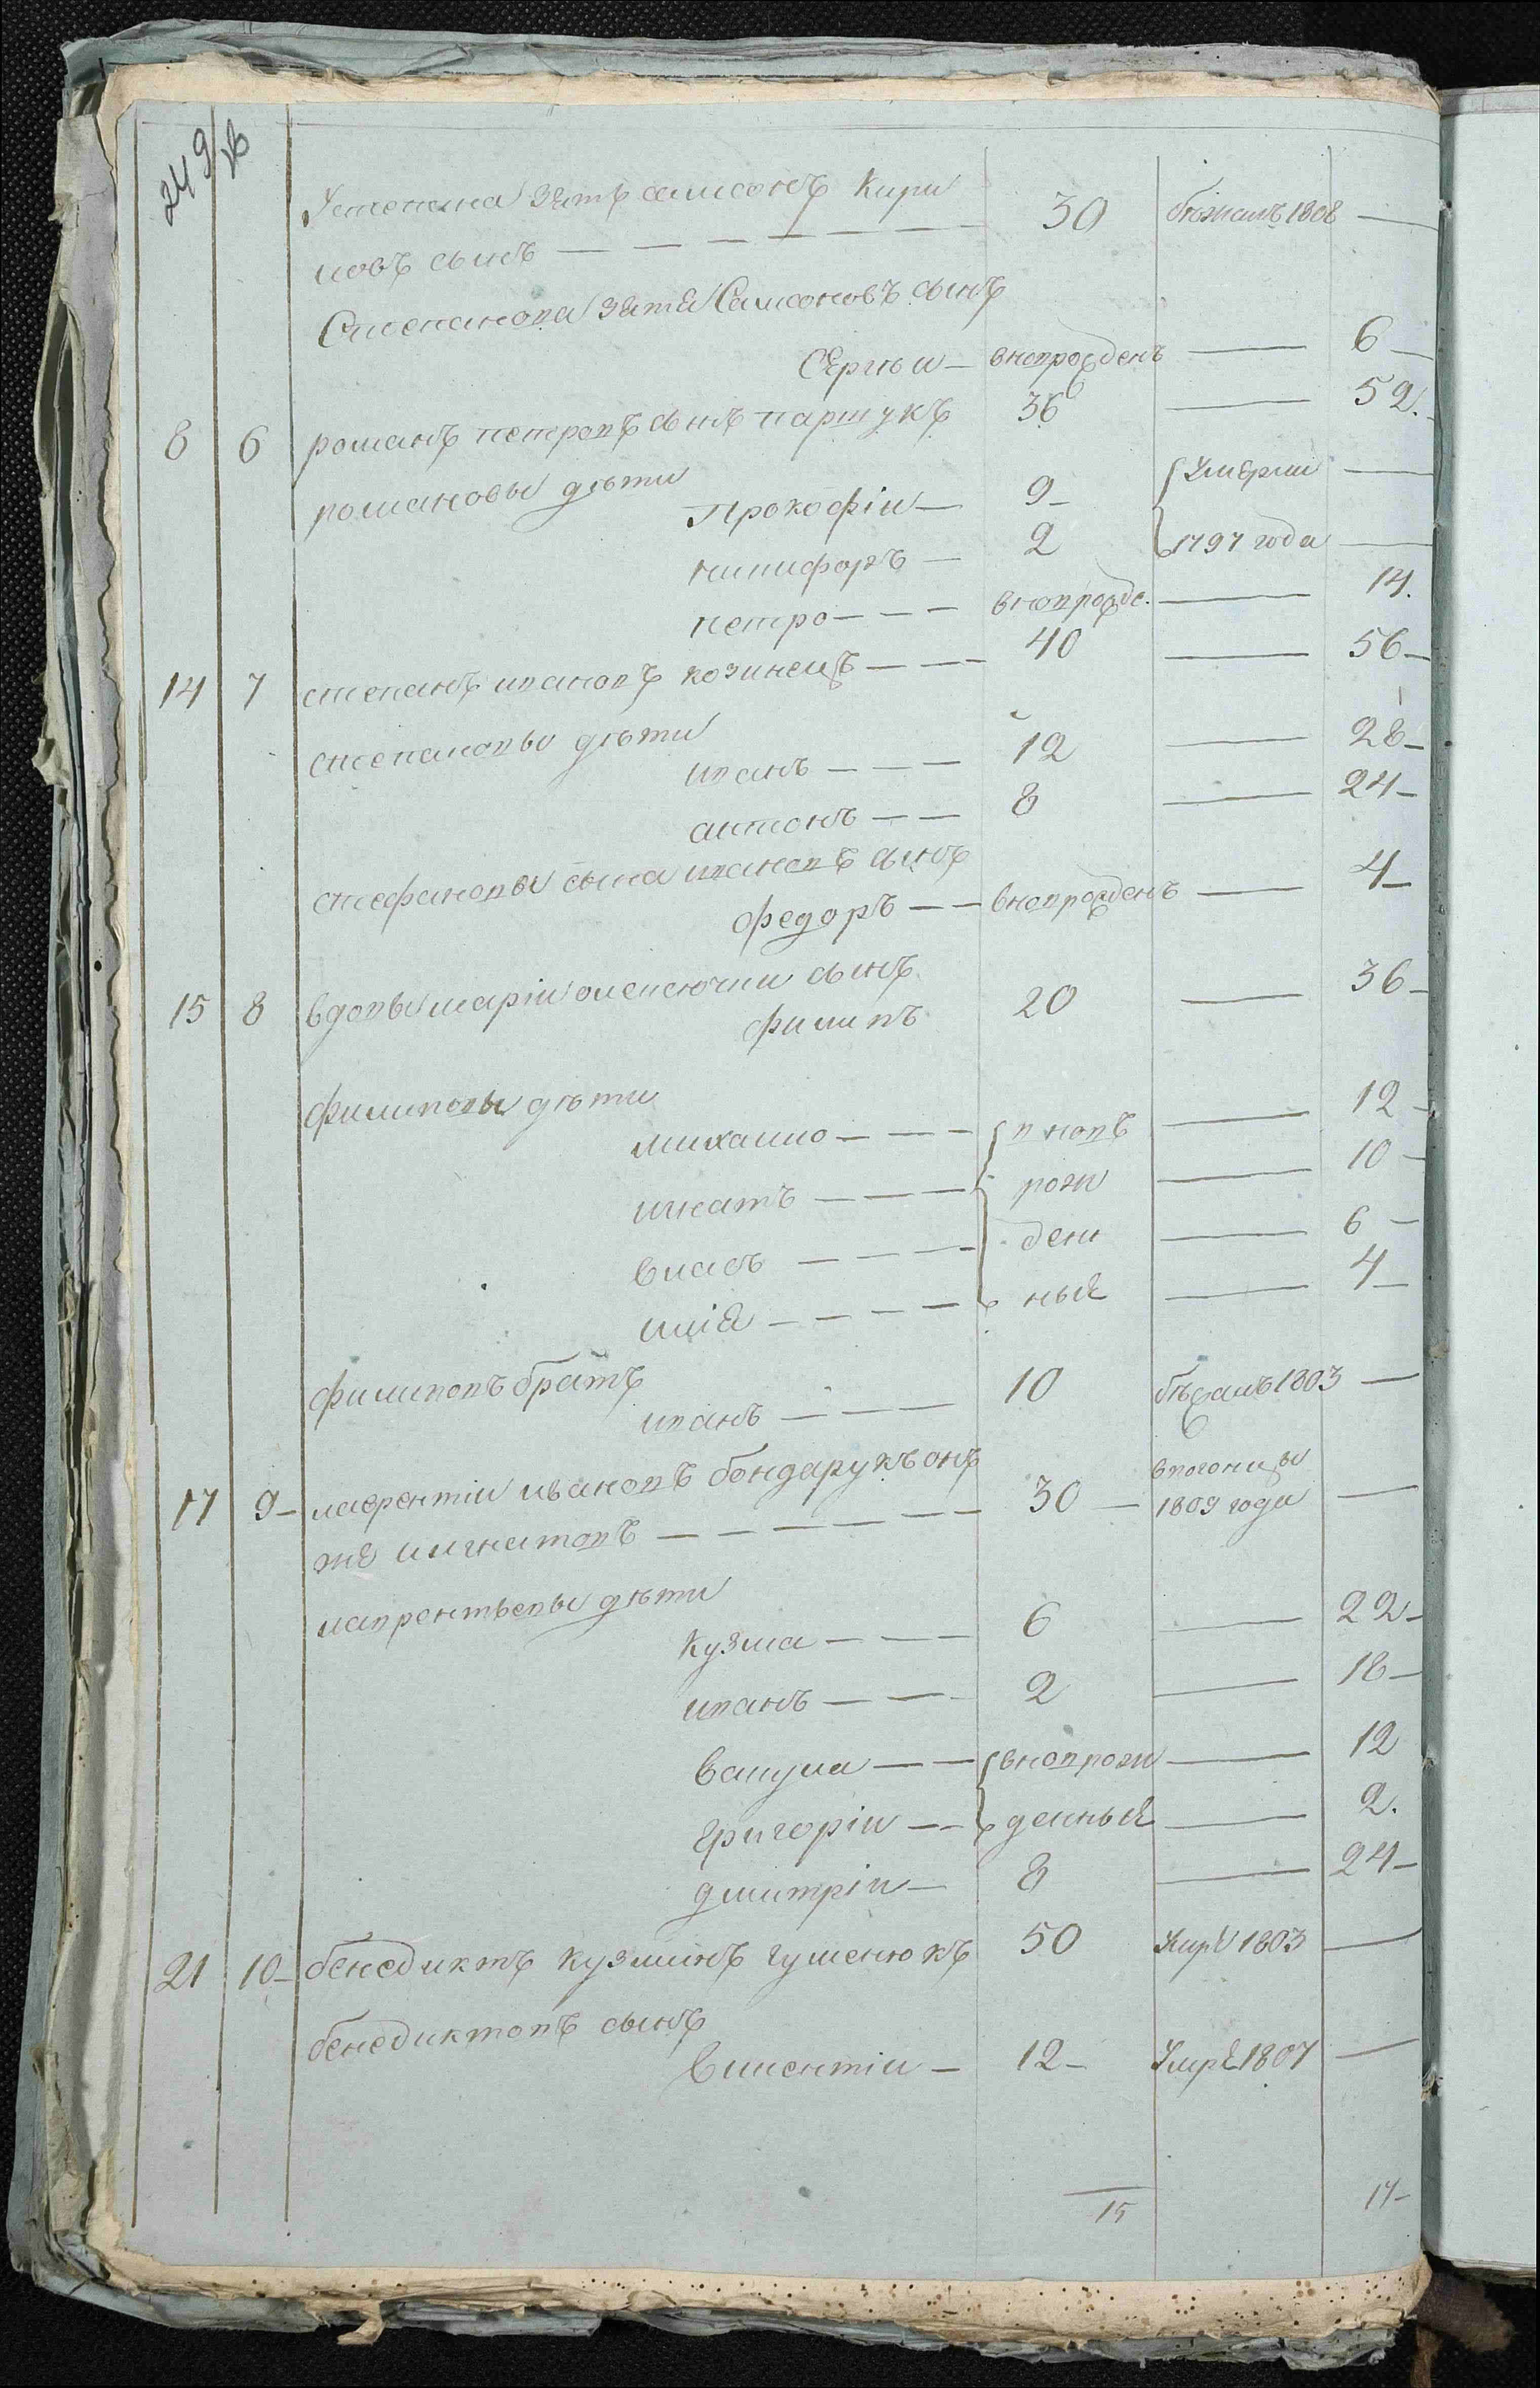 249 об
Устепана зять самсонъ Кири
ловъ сынъ — 30 бежалъ 1808 —
Степанова зятя Самсоновъ сынъ
Сергѣи — вновроденъ — 6
8 6 романъ петровъ сынъ паршукъ 36 — 52.
романовы дѣти
Прокофіи — 9 — Умерли —
никифоръ — 2 1797 года —
петро — вновроде. — 14.
14 7 степанъ ивановъ козинецъ — 40 — 56 —
степановы дѣти
иванъ — 12 — 28 —
антонъ — 8 — 24 —
стефановы сына ивановъ сынъ
федоръ — вновроденъ — 4 —
15 8 вдовы маріи сынъ
филипъ 20 — 36 —
филиповы дѣти
михаило — вновъ — 12 —
игнатъ — рож — 10 —
власъ — ден — 6 —
илія — ныя — 4 —
филиповъ братъ
иванъ — 10 бѣжалъ 1803 —
17 9 — лаврентіи ивановъ бондарукъ онъ
же и игнатовъ — 30 — 1809 года —
лаврентьевы дѣти
кузма — 6 — 22 —
иванъ — 2 — 18 —
вакула — вноврож — 12
григоріи — денныя — 2.
дмитріи — 8 — 24 —
21 10 — бенедиктъ кузминъ гушенюкъ 50 Умре 1803 —
бенедиктовъ сынъ
викентіи — 12 — Умре 1807 —
15 14 —